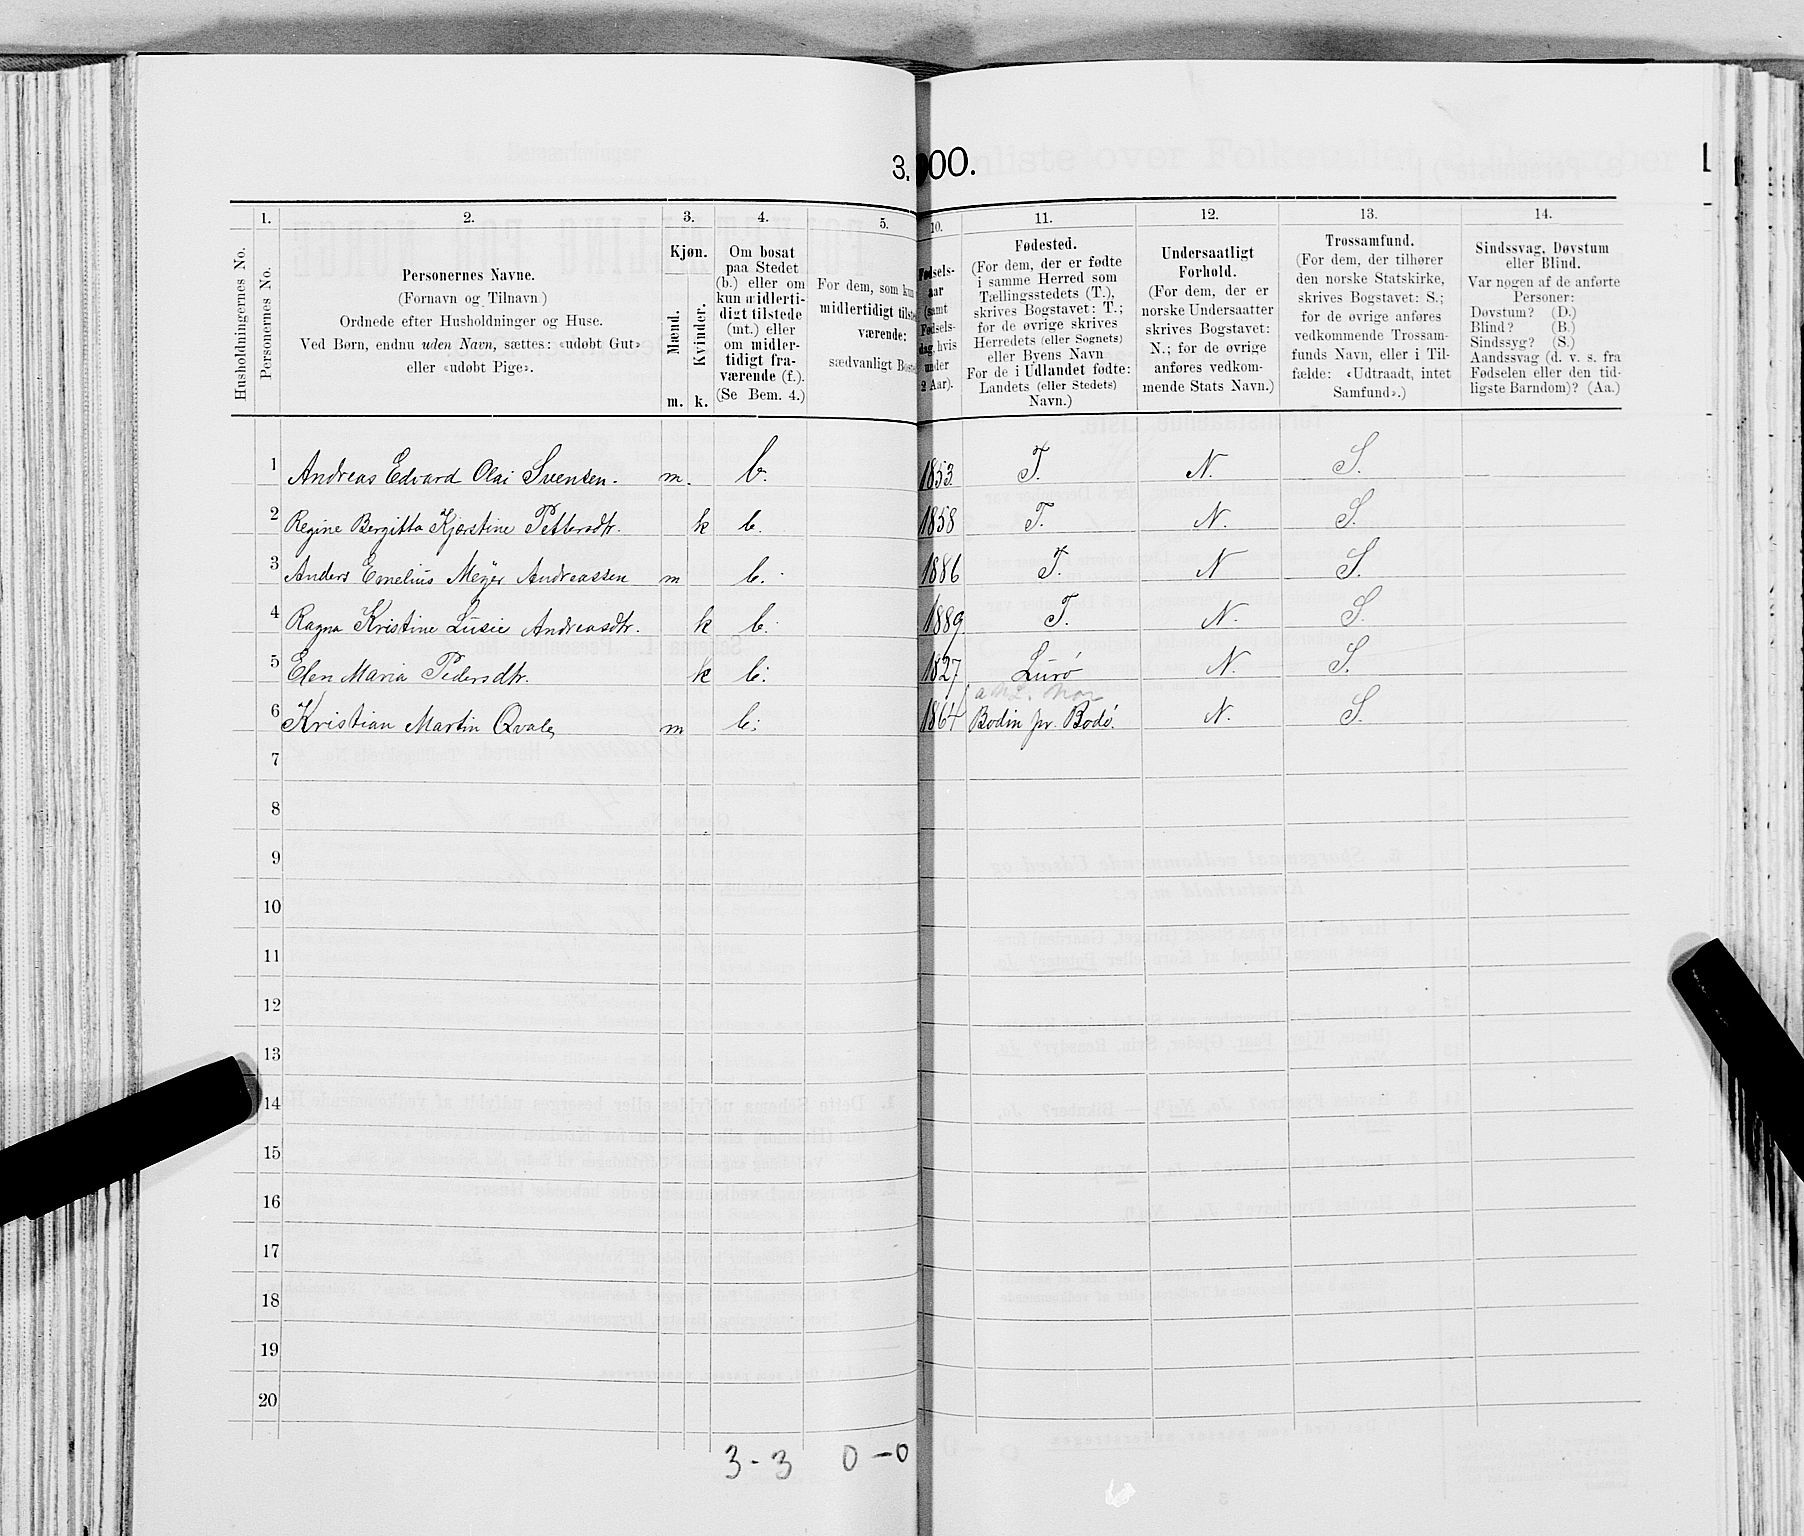 3. 00.
1. 2. 3. 4. 5. 10. 11. 12. 13. 14.
Husholdningernes No.
Personernes No.
Personernes Navne.
(Fornavn og Tilnavn)
Ordnede efter Husholdninger og Huse.
Ved Børn, endnu uden Navn, sættes: «udøbt Gut»
eller «udøbt Pige».
Kjøn.
Mænd.
Kvinder.
m. k.
Om bosat
paa Stedet
(b.) eller om
kun midlerti-
digt tilstede
(mt.) eller
om midler-
tidigt fra-
værende (f.).
(Se Bem. 4.)
For dem, som kun
midlertidigt tilste
værende:
sædvanligt Boste
Fødsels-
aar
(samt
Fødsels-
dag, hvis
under
2 Aar).
Fødested.
(For dem, der er fødte
i samme Herred som
Tællingsstedets (T.),
skrives Bogstavet: T.;
for de øvrige skrives
Herredets (eller Sognets)
eller Byens Navn
For de i Udlandet fødte:
Landets (eller Stedets)
Navn.)
Undersaatligt
Forhold.
(For dem, der er
norske Undersaatter
skrives Bogstavet:
N.; for de øvrige
anføres vedkom-
mende Stats Navn.)
Trossamfund.
(For dem, der tilhører
den norske Statskirke,
skrives Bogstavet: S.;
for de øvrige anføres
vedkommende Trossam-
funds Navn, eller i Til-
fælde: «Udtraadt, intet
Samfund».)
Sindssvag, Døvstum
eller Blind.
Var nogen af de anførte
Personer:
Døvstum? (D.)
Blind? (B.)
Sindssyg? (S.)
Aandssvag (d. v. s. fra
Fødselen eller den tid-
ligste Barndom)? (Aa.)
1 Andreas Edvard Olai Svensen. m. b. 1853 T. N. S.
2 Regine Bergitta Kjerstine Pettersdtr. k b. 1858 T. N. S.
3 Anders Emelius Meyer Andreassen m b. 1886 T. N S.
4 Ragna Kristine Lusie Andreasdtr. k b. 1889 T. N. S.
5 Elen Maria Pedersdtr. k b. 1827 Lurö N. S.
6 Kristian Martin Qvale, m b. 1864 Bodin pr. Bodö. N. S.
7
8
9
10
11
12
13
14
15
16
17
18
19
20
3 - 3 0 - 0